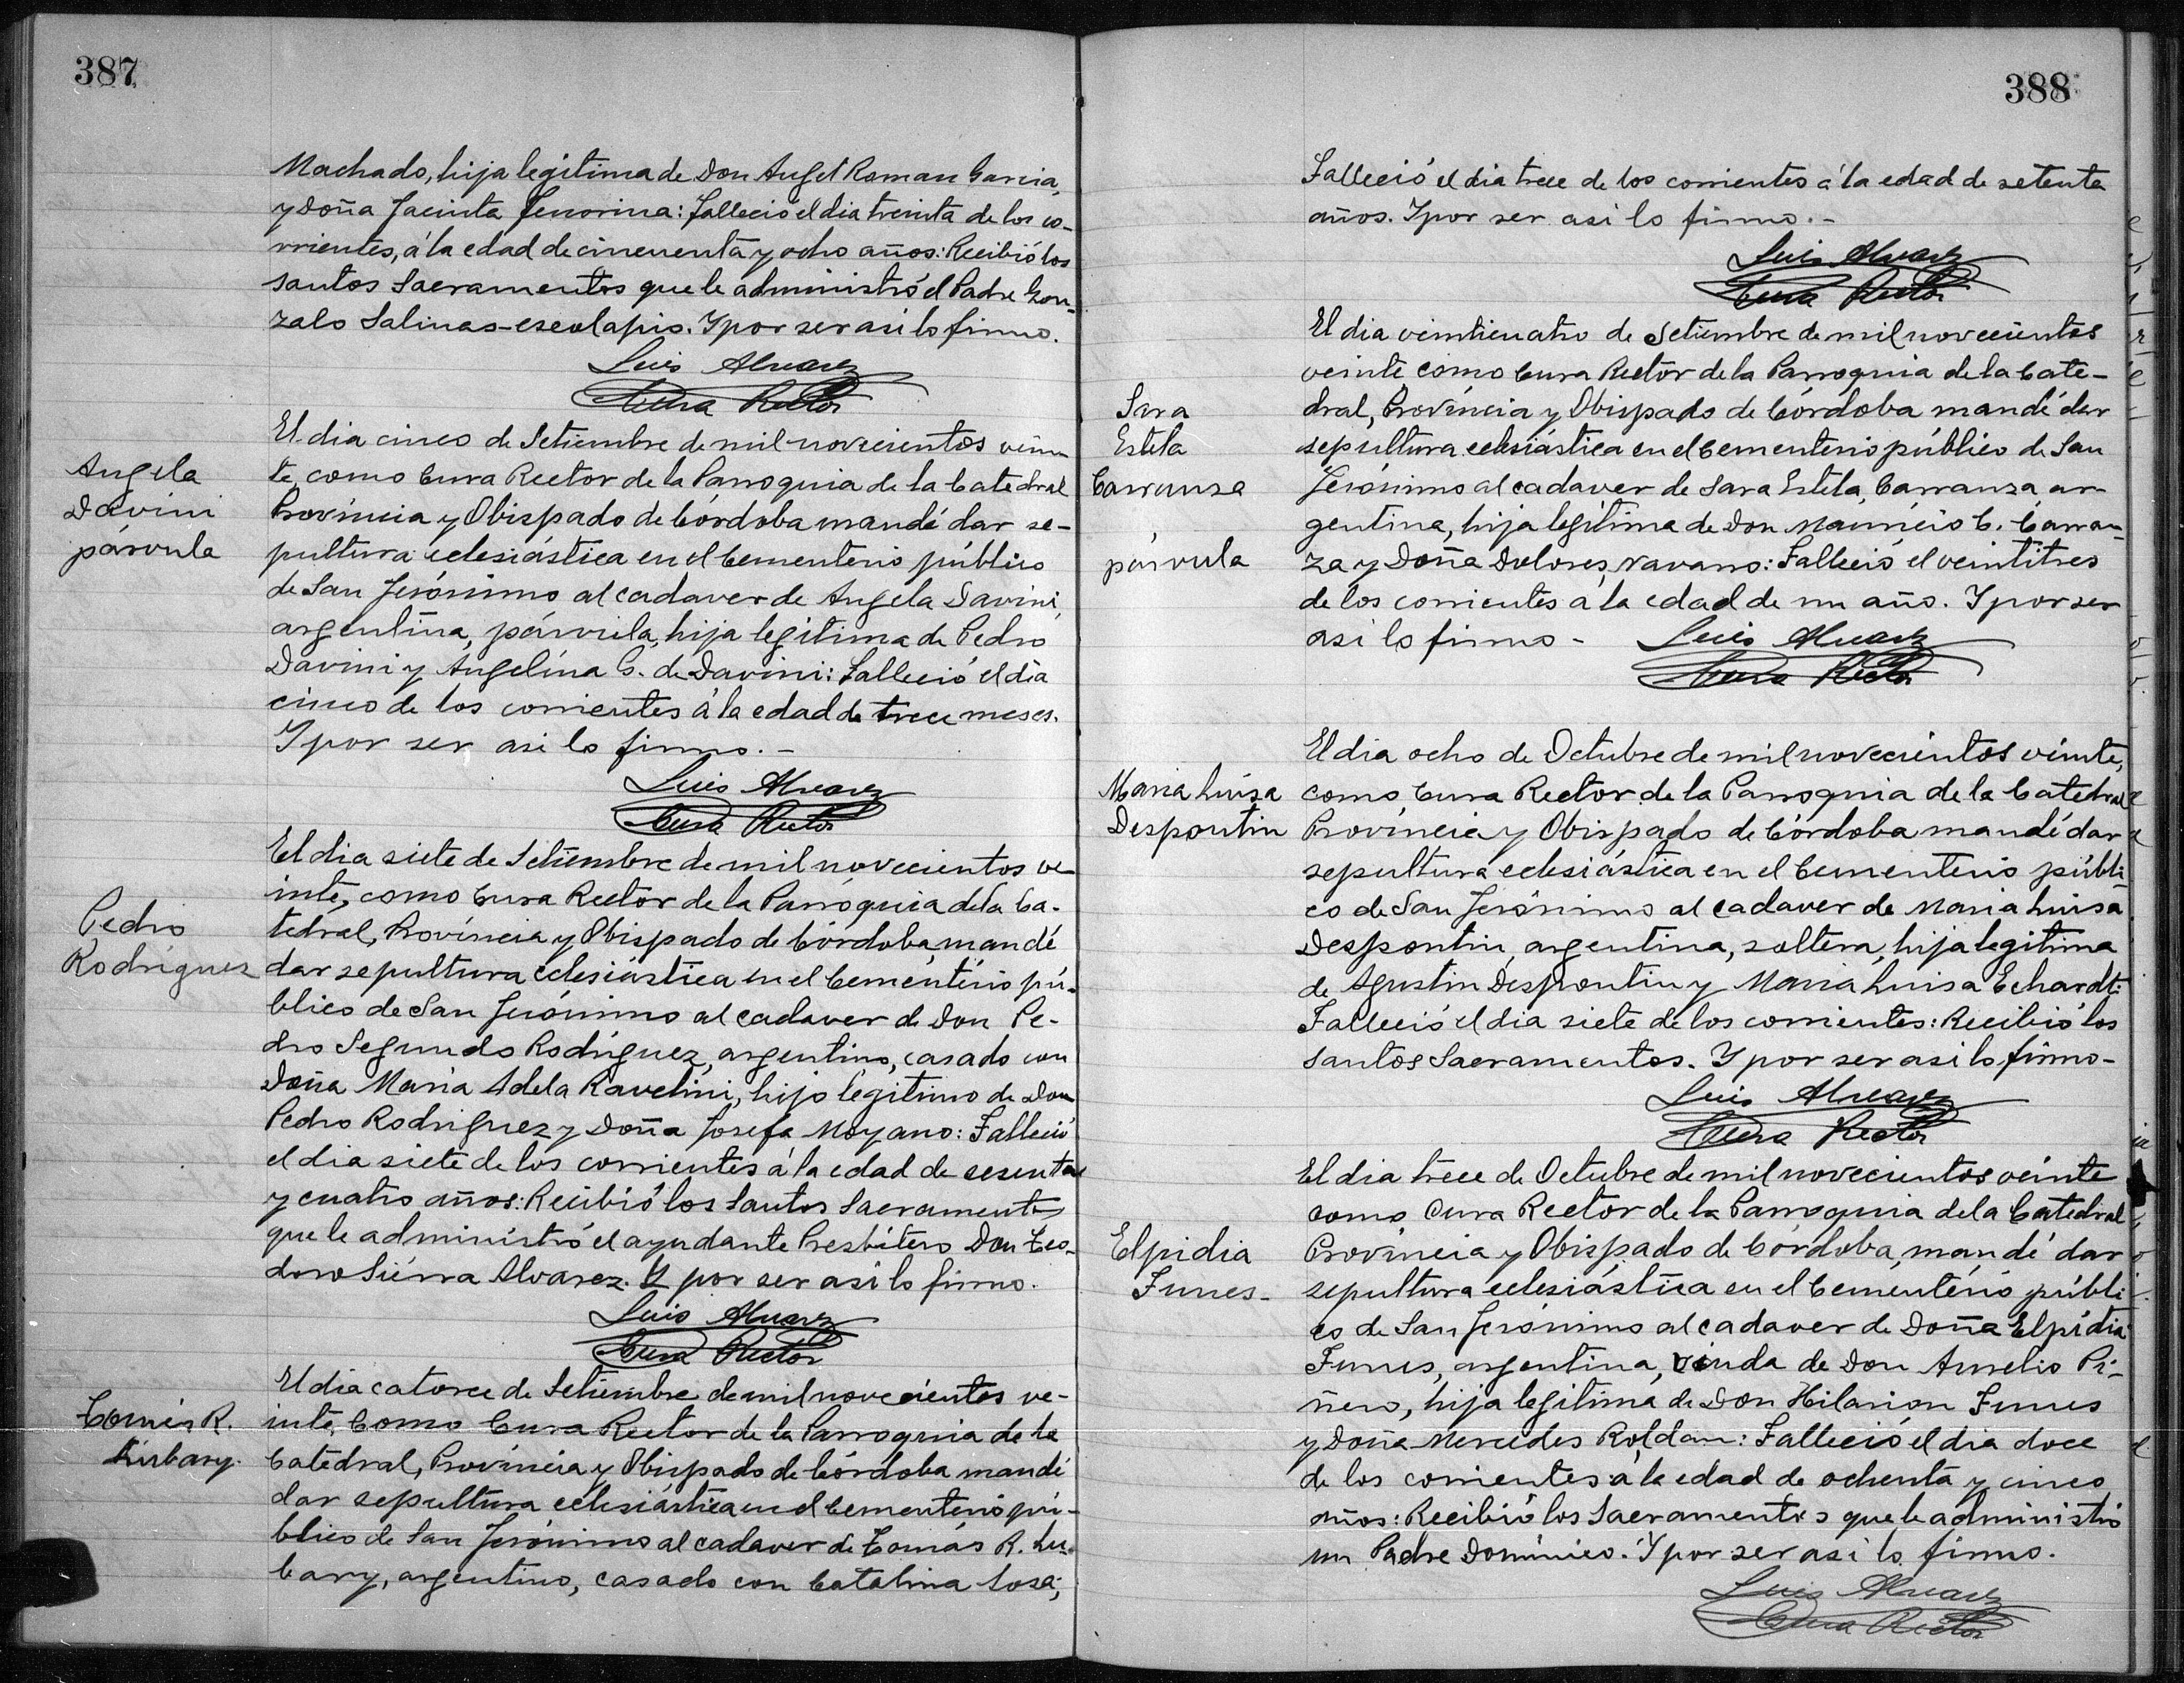 387
Machado, hija legítima de Don Angel Roman Garcia,
y Doña Jacinta Jenorina: falleció el dia treinta de los co-
rrientes, á la edad de cincuenta y ocho años: Recibió los
santos Sacramentos que le administró el Padre Gon-
zalo Salinas-escolapio. Y por ser asi lo firmo.
Luis Alvarez
Cura Rector
Angela
Davini
párvula
El dia cinco de Setiembre de mil novecientos vein-
te, como Cura Rector de la Parroquia de la Catedral
Província y Obispado de Córdoba mandé dar se-
pultura eclesiástica en el Cementerio público
de San Jerónimo al cadaver de Angela Davini,
argentina, párvula, hija legítima de Pedro
Davini y Angelina G. de Davini: Falleció el dia
cinco de los corrientes á la edad de trece meses.
Y por ser asi lo firmo.-
Luis Alvarez
Cura Rector
Pedro
Rodríguez
El dia siete de Setiembre de mil novecientos ve-
inte, como Cura Rector de la Parroquia de la Ca-
tedral, Província y Obispado de Córdoba, mandé
dar sepultura eclesiástica en el Cementério pú-
blico de San Jerónimo al cadaver de Don Pe-
dro Segundo Rodríguez, argentino, casado con
Doña Maria Adela Ravelini, hijo legitimo de Don
Pedro Rodriguez y Doña Josefa Moyano: Falleció
el dia siete de los corrientes á la edad de sesenta
y cuatro años: Recibió los Santos Sacramentos
que le administró el ayudante Presbítero Don Teo-
doro Siérra Alvarez. Y por ser asi lo firmo.
Luis Alvarez
Cura Rector
Tomás R.
Lubary.
El dia catorce de Setiembre de mil novecientos ve-
inte, Como Cura Rector de la Parroquia de la
Catedral, Província y Obispado de Córdoba mandé
dar sepultura eclesiástica en el Cementerio pú-
blico de San Jerónimo al cadaver de Tomás R. Lu-
bary, argentino, casado con Catalina Sosa;
388
Falleció el dia trece de los corrientes á la edad de setenta
años. Y por ser asi lo firmo.-
Luis Alvarez
Cura Rector
Sara
Estela
Carranza
párvula
El dia veinticuatro de Setiembre de mil novecientos
veinte como Cura Rector de la Parroquia de la Cate-
dral, Província y Obispado de Córdoba mandé dar
sepultura eclesiástica en el Cementerio público de San
Jerónimo al cadaver de Sara Estela, Carranza, ar-
gentina, hija legítima de Don Mauricio C. Carran-
za y Doña Dolores Navarro: Falleció el veintitres
de los corrientes a la edad de un año. Y por ser
asi lo firmo - Luis Alvarez
Cura Rector
Maria Luisa
Despontin
El dia ocho de Octubre de mil novecientos veinte,
como, Cura Rector de la Parroquia de la Catedral
Província y Obispado de Córdoba mandé dar
sepultura eclesiástica en el Cementerio públi-
co de San Jerónimo al cadaver de Maria Luisa
Despontin, argentina, soltera, hija legitima
de Agustin Despontin y Maria Luisa Echardt:
Falleció el dia siete de los corrientes: Recibió los
santos Sacramentos. Y por ser asi lo firmo-
Luis Alvarez
Cura Rector
Elpidia
Funes-
El dia trece de Octubre de mil novecientos veinte
como Cura Rector de la Parroquia de la Catedral
Província y Obispado de Córdoba, mandé dar
sepultura eclesiástica en el Cementério públi
co de San Jerónimo al cadaver de Doña Elpidia
Funes, argentina, viuda de Don Aurelio Pi-
ñero, hija legítima de Don Hilarion Funes
y Doña Mercedes Roldan: Falleció el dia doce
de los corrientes á la edad de ochenta y cinco
años: Recibió los Sacramentos que le administró
un Padre Domínico. Y por ser asi lo firmo.
Luis Alvarez
Cura Rector